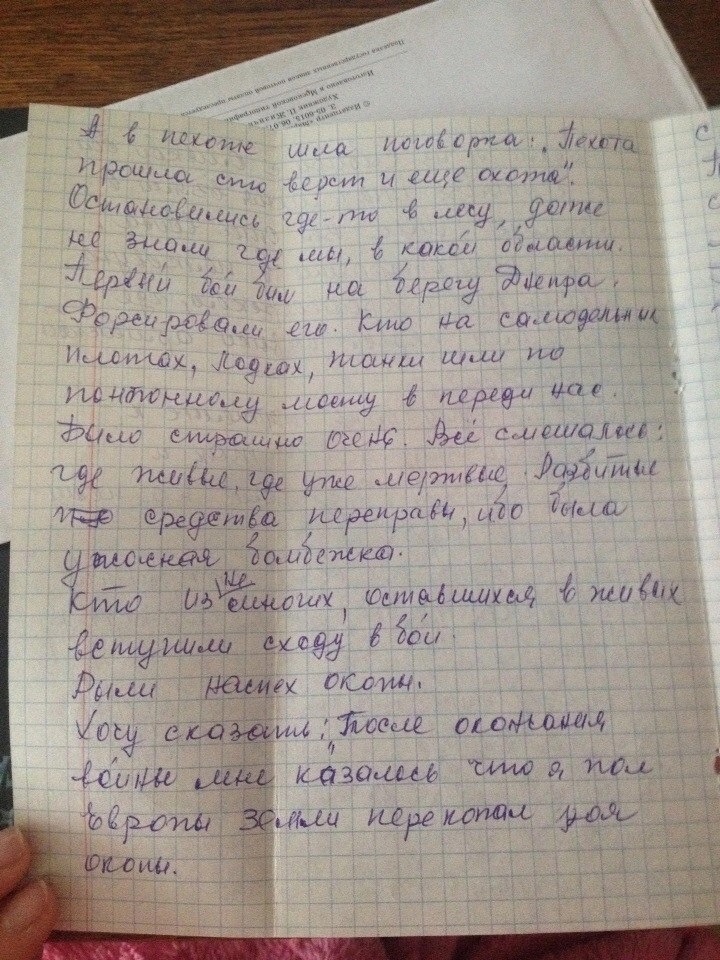 Продажа государственных знаков почтовой оплаты
Изготовлено в Московской типографии
Художник П. Жиличкин
© Издатцентр «Марка»
А в пехоте шла поговорка: „Пехота
прошла сто верст и еще охота".
Остановились где-то в лесу, даже
не знали где мы, в какой области.
Первый бой был на берегу Днепра.
Форсировали его. Кто на самодельных
плотах, лодках, танки шли по
понтонному мосту в переди нас.
Было страшно очень. Всё смешалось:
где живые, где уже мертвые. Разбитые
средства переправы, ибо была
ужасная бомбежка.
Кто из немногих, оставшихся в живых
вступили сходу в бой.
Рыли наспех окопы.
Хочу сказать: „После окончания
войны мне казалось что я пол
Европы земли перекопал роя
окопы.